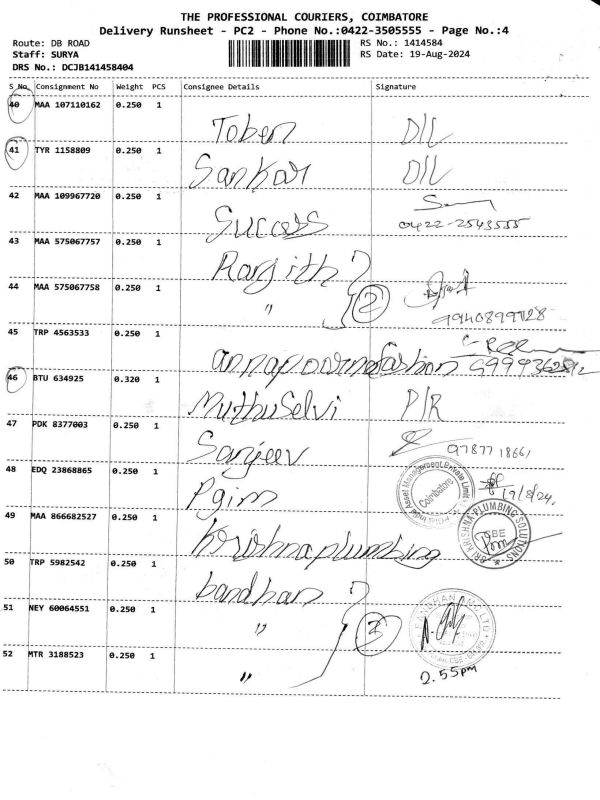 THE PROFESSIONAL COURIERS, COIMBATORE
Delivery Runsheet - PC2 - Phone No.:0422-3505555 - Page No.:4
Route: DB ROAD
RS No.: 1414584
Staff: SURYA
RS Date: 19-Aug-2024
DRS No.: DCJB141458404
S No. Consignment No Weight PCS Consignee Details Signature
40 MAA 107110162 0.250 1
Toben D/L
41 TYR 1158809 0.250 1
Sankar D/L
42 MAA 109967720 0.250 1
Success 0422-2543555
43 MAA 575067757 0.250 1
Ranjith
44 MAA 575067758 0.250 1
" 2
9940899728
45 TRP 4563533 0.250 1
annapoorna fashion
46 BTU 634925 0.320 1
Muthu Selvi P/R
47 PDK 8377003 0.250 1
Sanjeev 9787718661
48 EDQ 23868865 0.250 1
Pgim 19/8/24.
Coimbatore
49 MAA 866682527 0.250 1
Krishna plumbing
SRI KRISHNA PLUMBING SOLUTIONS
CBE
50 TRP 5982542 0.250 1
bandhan
51 NEY 60064551 0.250 1
" 3
BANDHAN AMC LTD
52 MTR 3188523 0.250 1
"
2.55pm